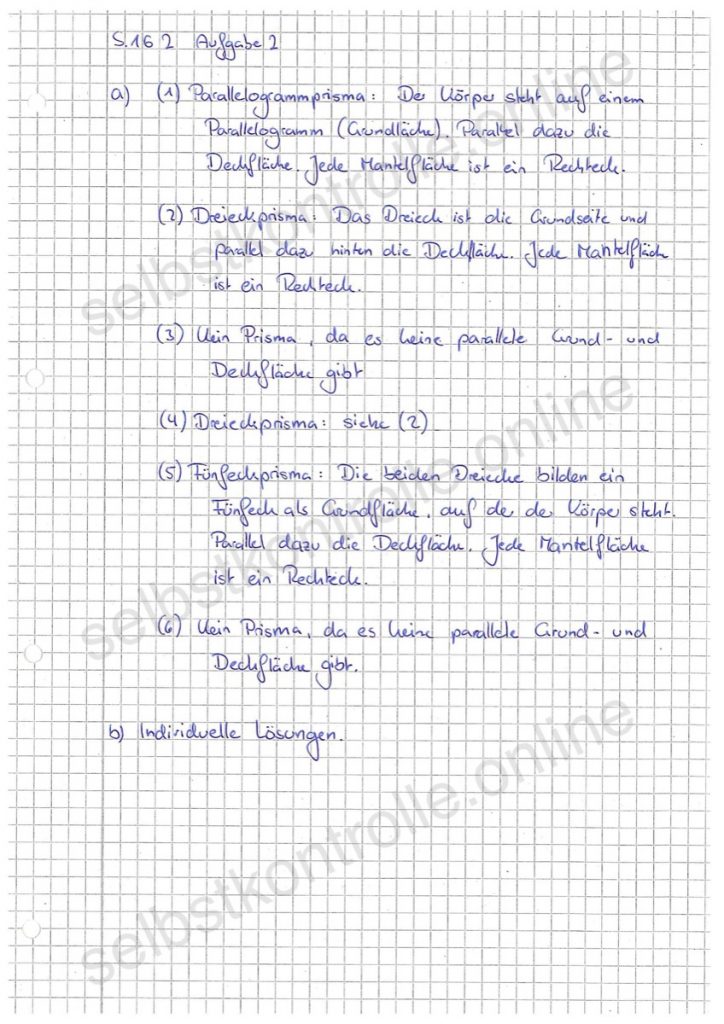 S.162 Aufgabe 2
a) (1) Parallelogrammprisma: Der Körper steht auf einem
Parallelogramm (Grundfläche). Parallel dazu die
Deckfläche. Jede Mantelfläche ist ein Rechteck.
(2) Dreiecksprisma: Das Dreieck ist die Grundseite und
parallel dazu hinten die Deckfläche. Jede Mantelfläche
ist ein Rechteck.
(3) Kein Prisma, da es keine parallele Grund- und
Deckfläche gibt
(4) Dreiecksprisma: siehe (2)
(5) Fünfecksprisma: Die beiden Dreiecke bilden ein
Fünfeck als Grundfläche, auf der der Körper steht.
Parallel dazu die Deckfläche. Jede Mantelfläche
ist ein Rechteck.
(6) Kein Prisma, da es keine parallele Grund- und
Deckfläche gibt.
b) Individuelle Lösungen.
selbstkontrolle.online
selbstkontrolle.online
selbstkontrolle.online